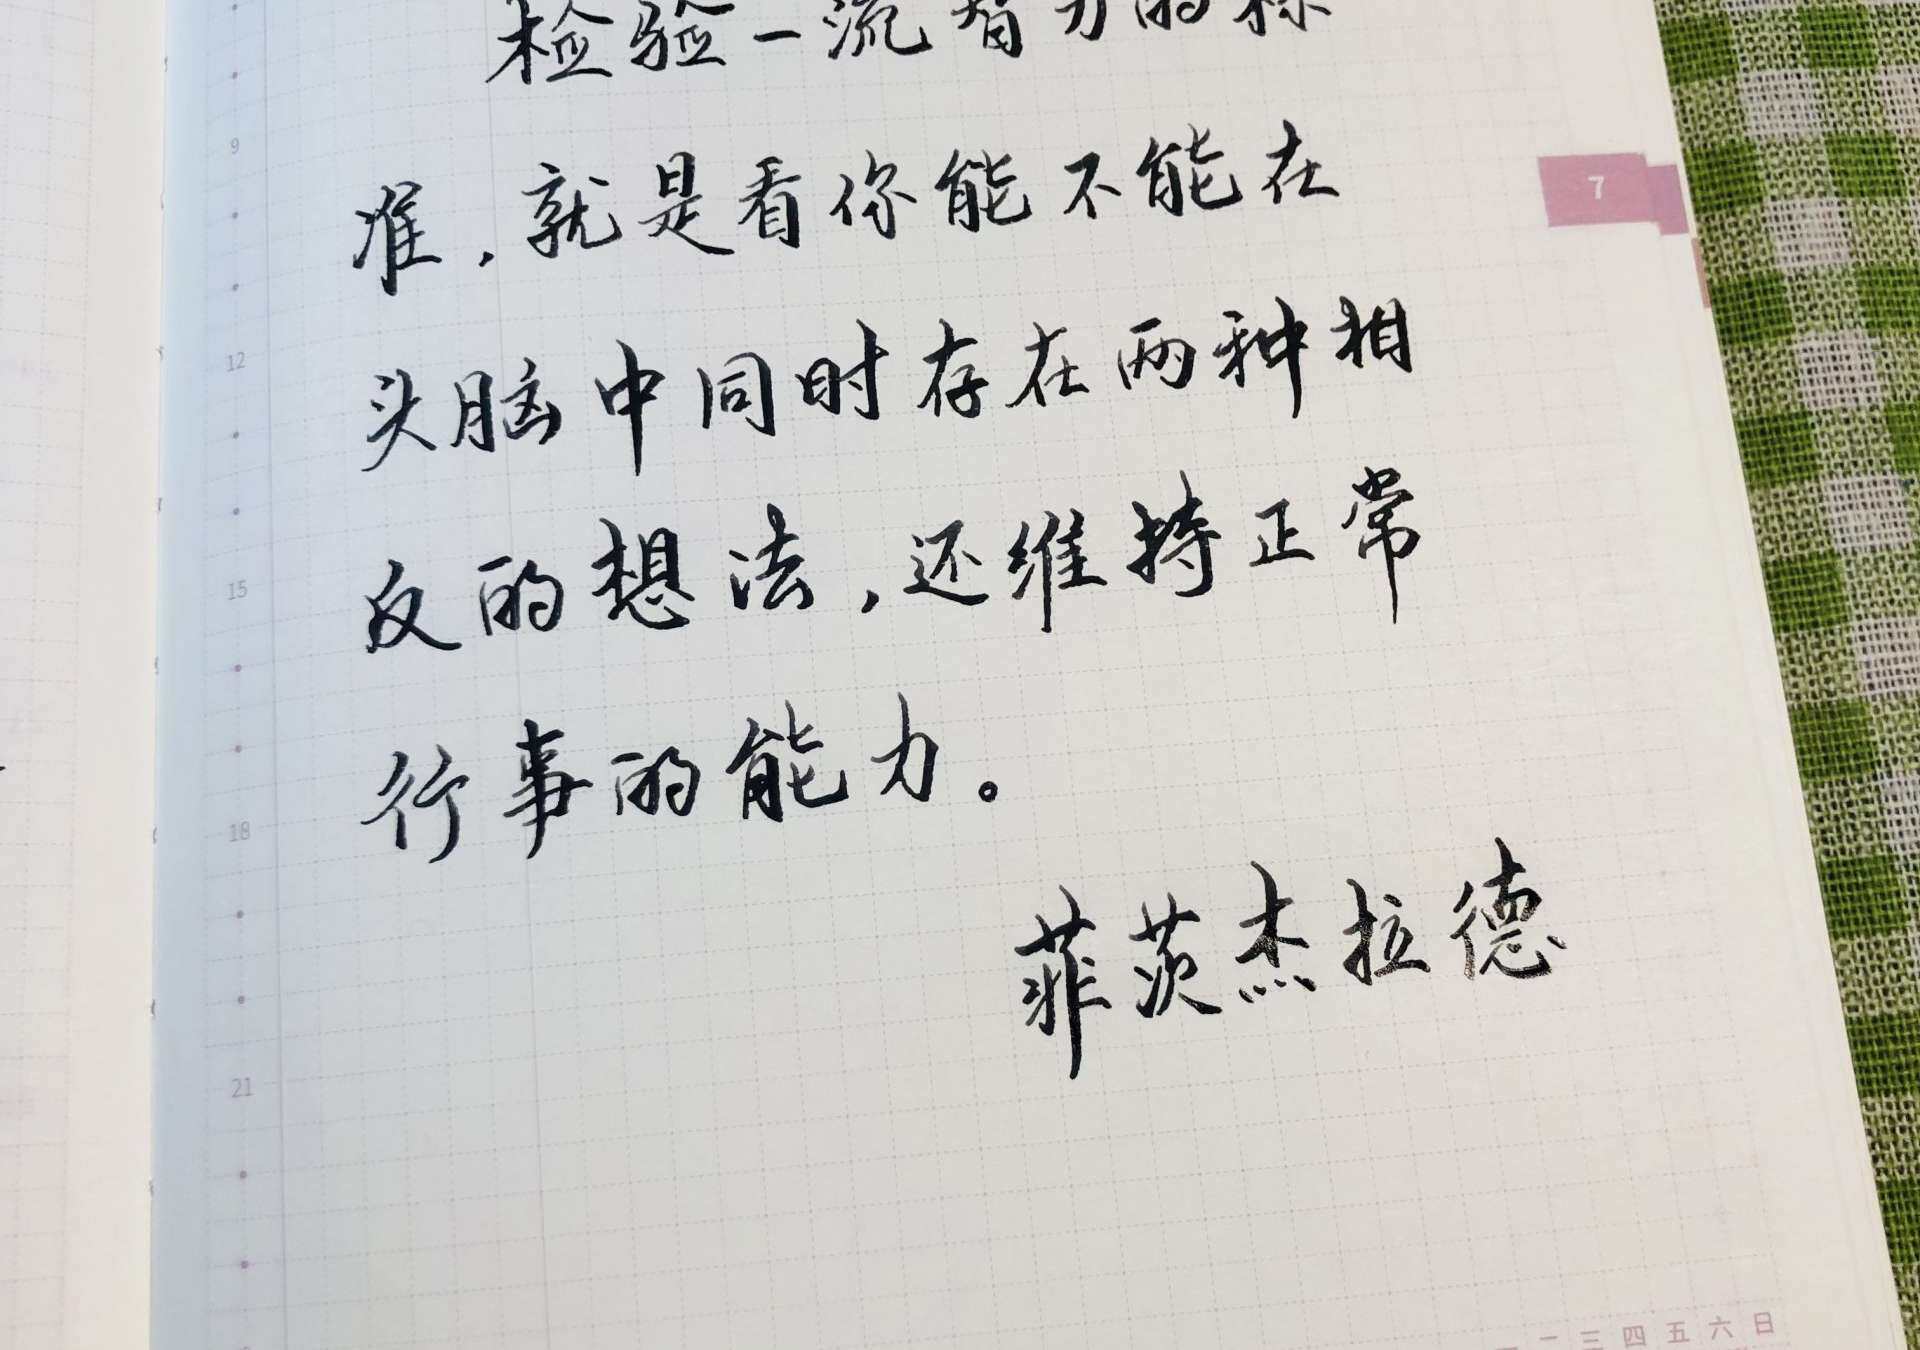 检验一流智力的标
准，就是看你能不能在
头脑中同时存在两种相
反的想法，还维持正常
行事的能力。
菲茨杰拉德
7
9
12
15
18
21
一 三 四 五 六 日